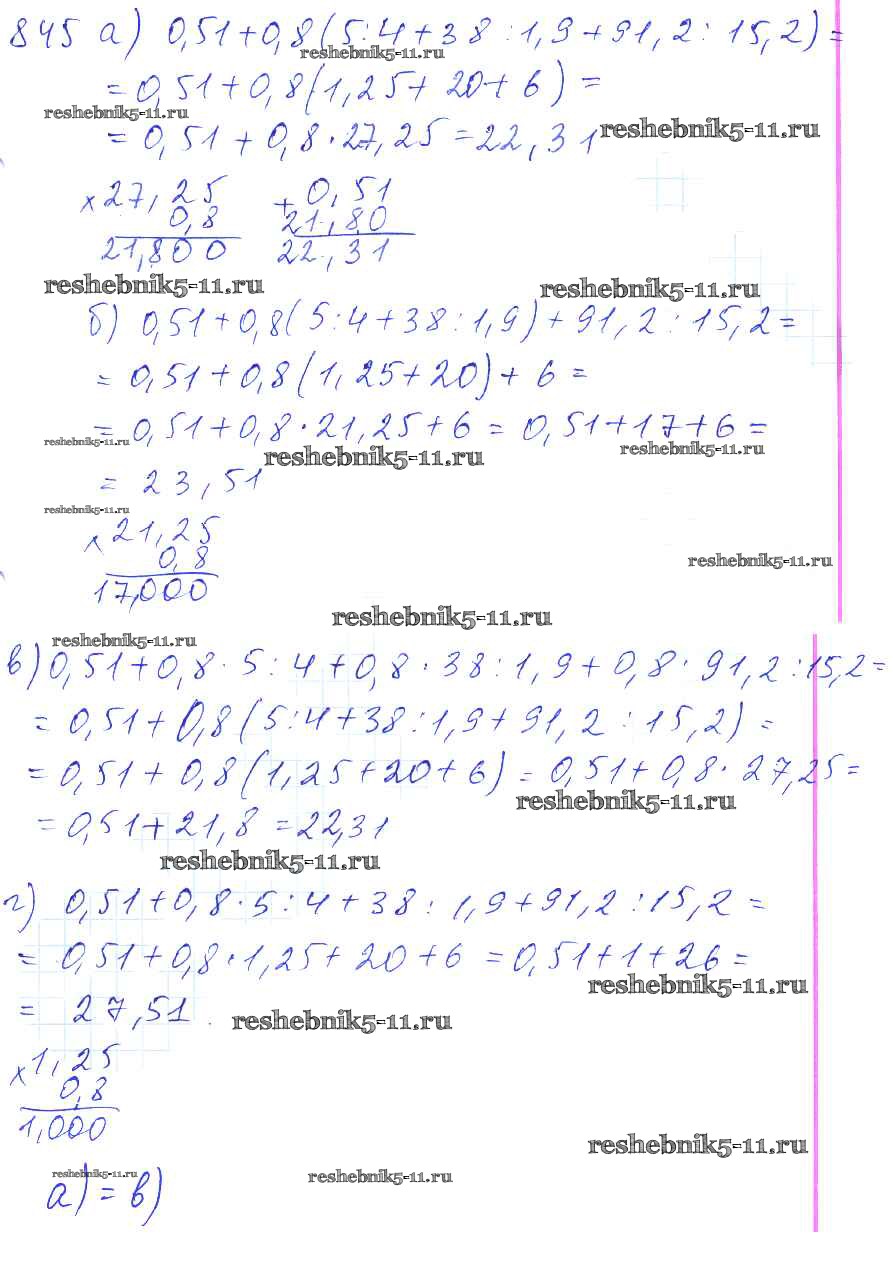 845 а) 0,51+0,8(5:4+38:1,9+91,2:15,2)=
reshebnik5-11.ru
=0,51+0,8(1,25+20+6)=
reshebnik5-11.ru
=0,51+0,8·27,25=22,31
reshebnik5-11.ru
×27,25 +0,51
0,8 21,80
21,800 22,31
reshebnik5-11.ru reshebnik5-11.ru
б) 0,51+0,8(5:4+38:1,9)+91,2:15,2=
=0,51+0,8(1,25+20)+6=
=0,51+0,8·21,25+6=0,51+17+6=
reshebnik5-11.ru reshebnik5-11.ru reshebnik5-11.ru
=23,51
reshebnik5-11.ru
×21,25
0,8
reshebnik5-11.ru
17,000
reshebnik5-11.ru
reshebnik5-11.ru
в) 0,51+0,8·5:4+0,8·38:1,9+0,8·91,2:15,2=
=0,51+0,8(5:4+38:1,9+91,2:15,2)=
=0,51+0,8(1,25+20+6)=0,51+0,8·27,25=
reshebnik5-11.ru
=0,51+21,8=22,31
reshebnik5-11.ru
г) 0,51+0,8·5:4+38:1,9+91,2:15,2=
=0,51+0,8·1,25+20+6=0,51+1+26=
reshebnik5-11.ru
=27,51
reshebnik5-11.ru
×1,25
0,8
1,000
reshebnik5-11.ru
reshebnik5-11.ru reshebnik5-11.ru
а)=в)